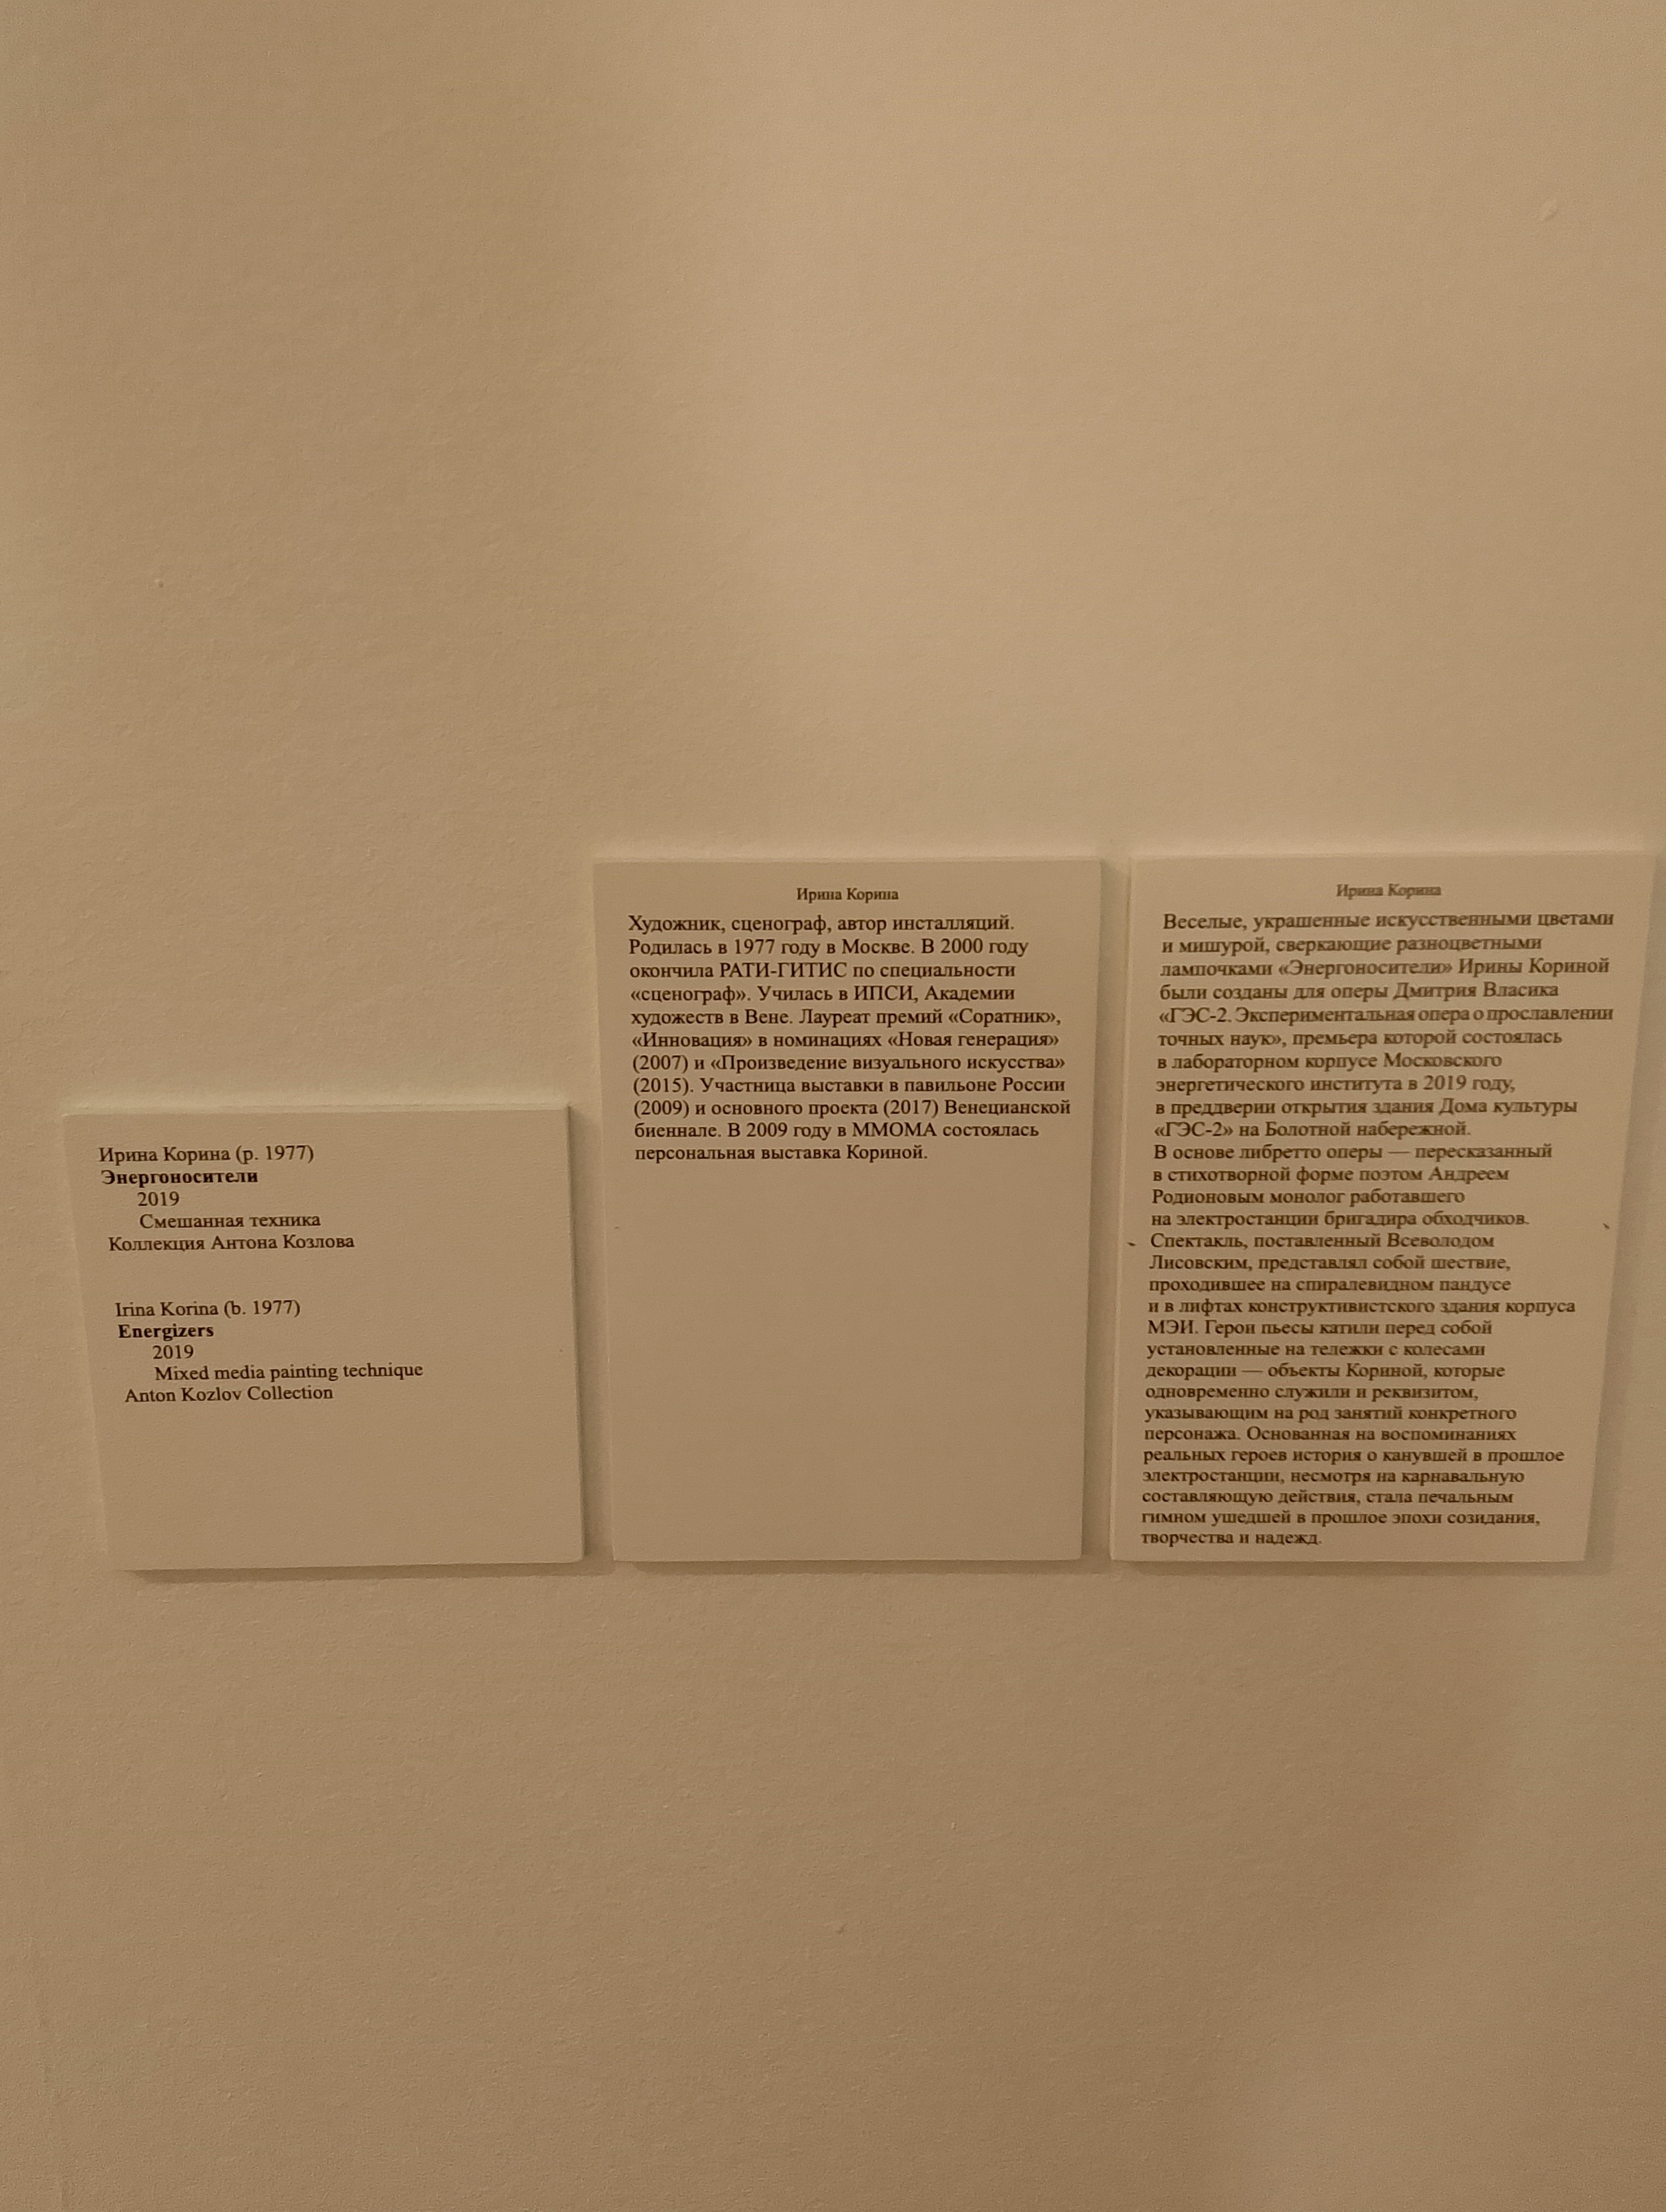 Ирина Корина (р. 1977)
Энергоносители
2019
Смешанная техника
Коллекция Антона Козлова
Irina Korina (b. 1977)
Energizers
2019
Mixed media painting technique
Anton Kozlov Collection
Ирина Корина
Художник, сценограф, автор инсталляций.
Родилась в 1977 году в Москве. В 2000 году
окончила РАТИ-ГИТИС по специальности
«сценограф». Училась в ИПСИ, Академии
художеств в Вене. Лауреат премий «Соратник»,
«Инновация» в номинациях «Новая генерация»
(2007) и «Произведение визуального искусства»
(2015). Участница выставки в павильоне России
(2009) и основного проекта (2017) Венецианской
биеннале. В 2009 году в ММОМА состоялась
персональная выставка Кориной.
Ирина Корина
Веселые, украшенные искусственными цветами
и мишурой, сверкающие разноцветными
лампочками «Энергоносители» Ирины Кориной
были созданы для оперы Дмитрия Власика
«ГЭС-2. Экспериментальная опера о прославлении
точных наук», премьера которой состоялась
в лабораторном корпусе Московского
энергетического института в 2019 году,
в преддверии открытия здания Дома культуры
«ГЭС-2» на Болотной набережной.
В основе либретто оперы — пересказанный
в стихотворной форме поэтом Андреем
Родионовым монолог работавшего
на электростанции бригадира обходчиков.
Спектакль, поставленный Всеволодом
Лисовским, представлял собой шествие,
проходившее на спиралевидном пандусе
и в лифтах конструктивистского здания корпуса
МЭИ. Герои пьесы катили перед собой
установленные на тележки с колесами
декорации — объекты Кориной, которые
одновременно служили и реквизитом,
указывающим на род занятий конкретного
персонажа. Основанная на воспоминаниях
реальных героев история о канувшей в прошлое
электростанции, несмотря на карнавальную
составляющую действия, стала печальным
гимном ушедшей в прошлое эпохи созидания,
творчества и надежд.